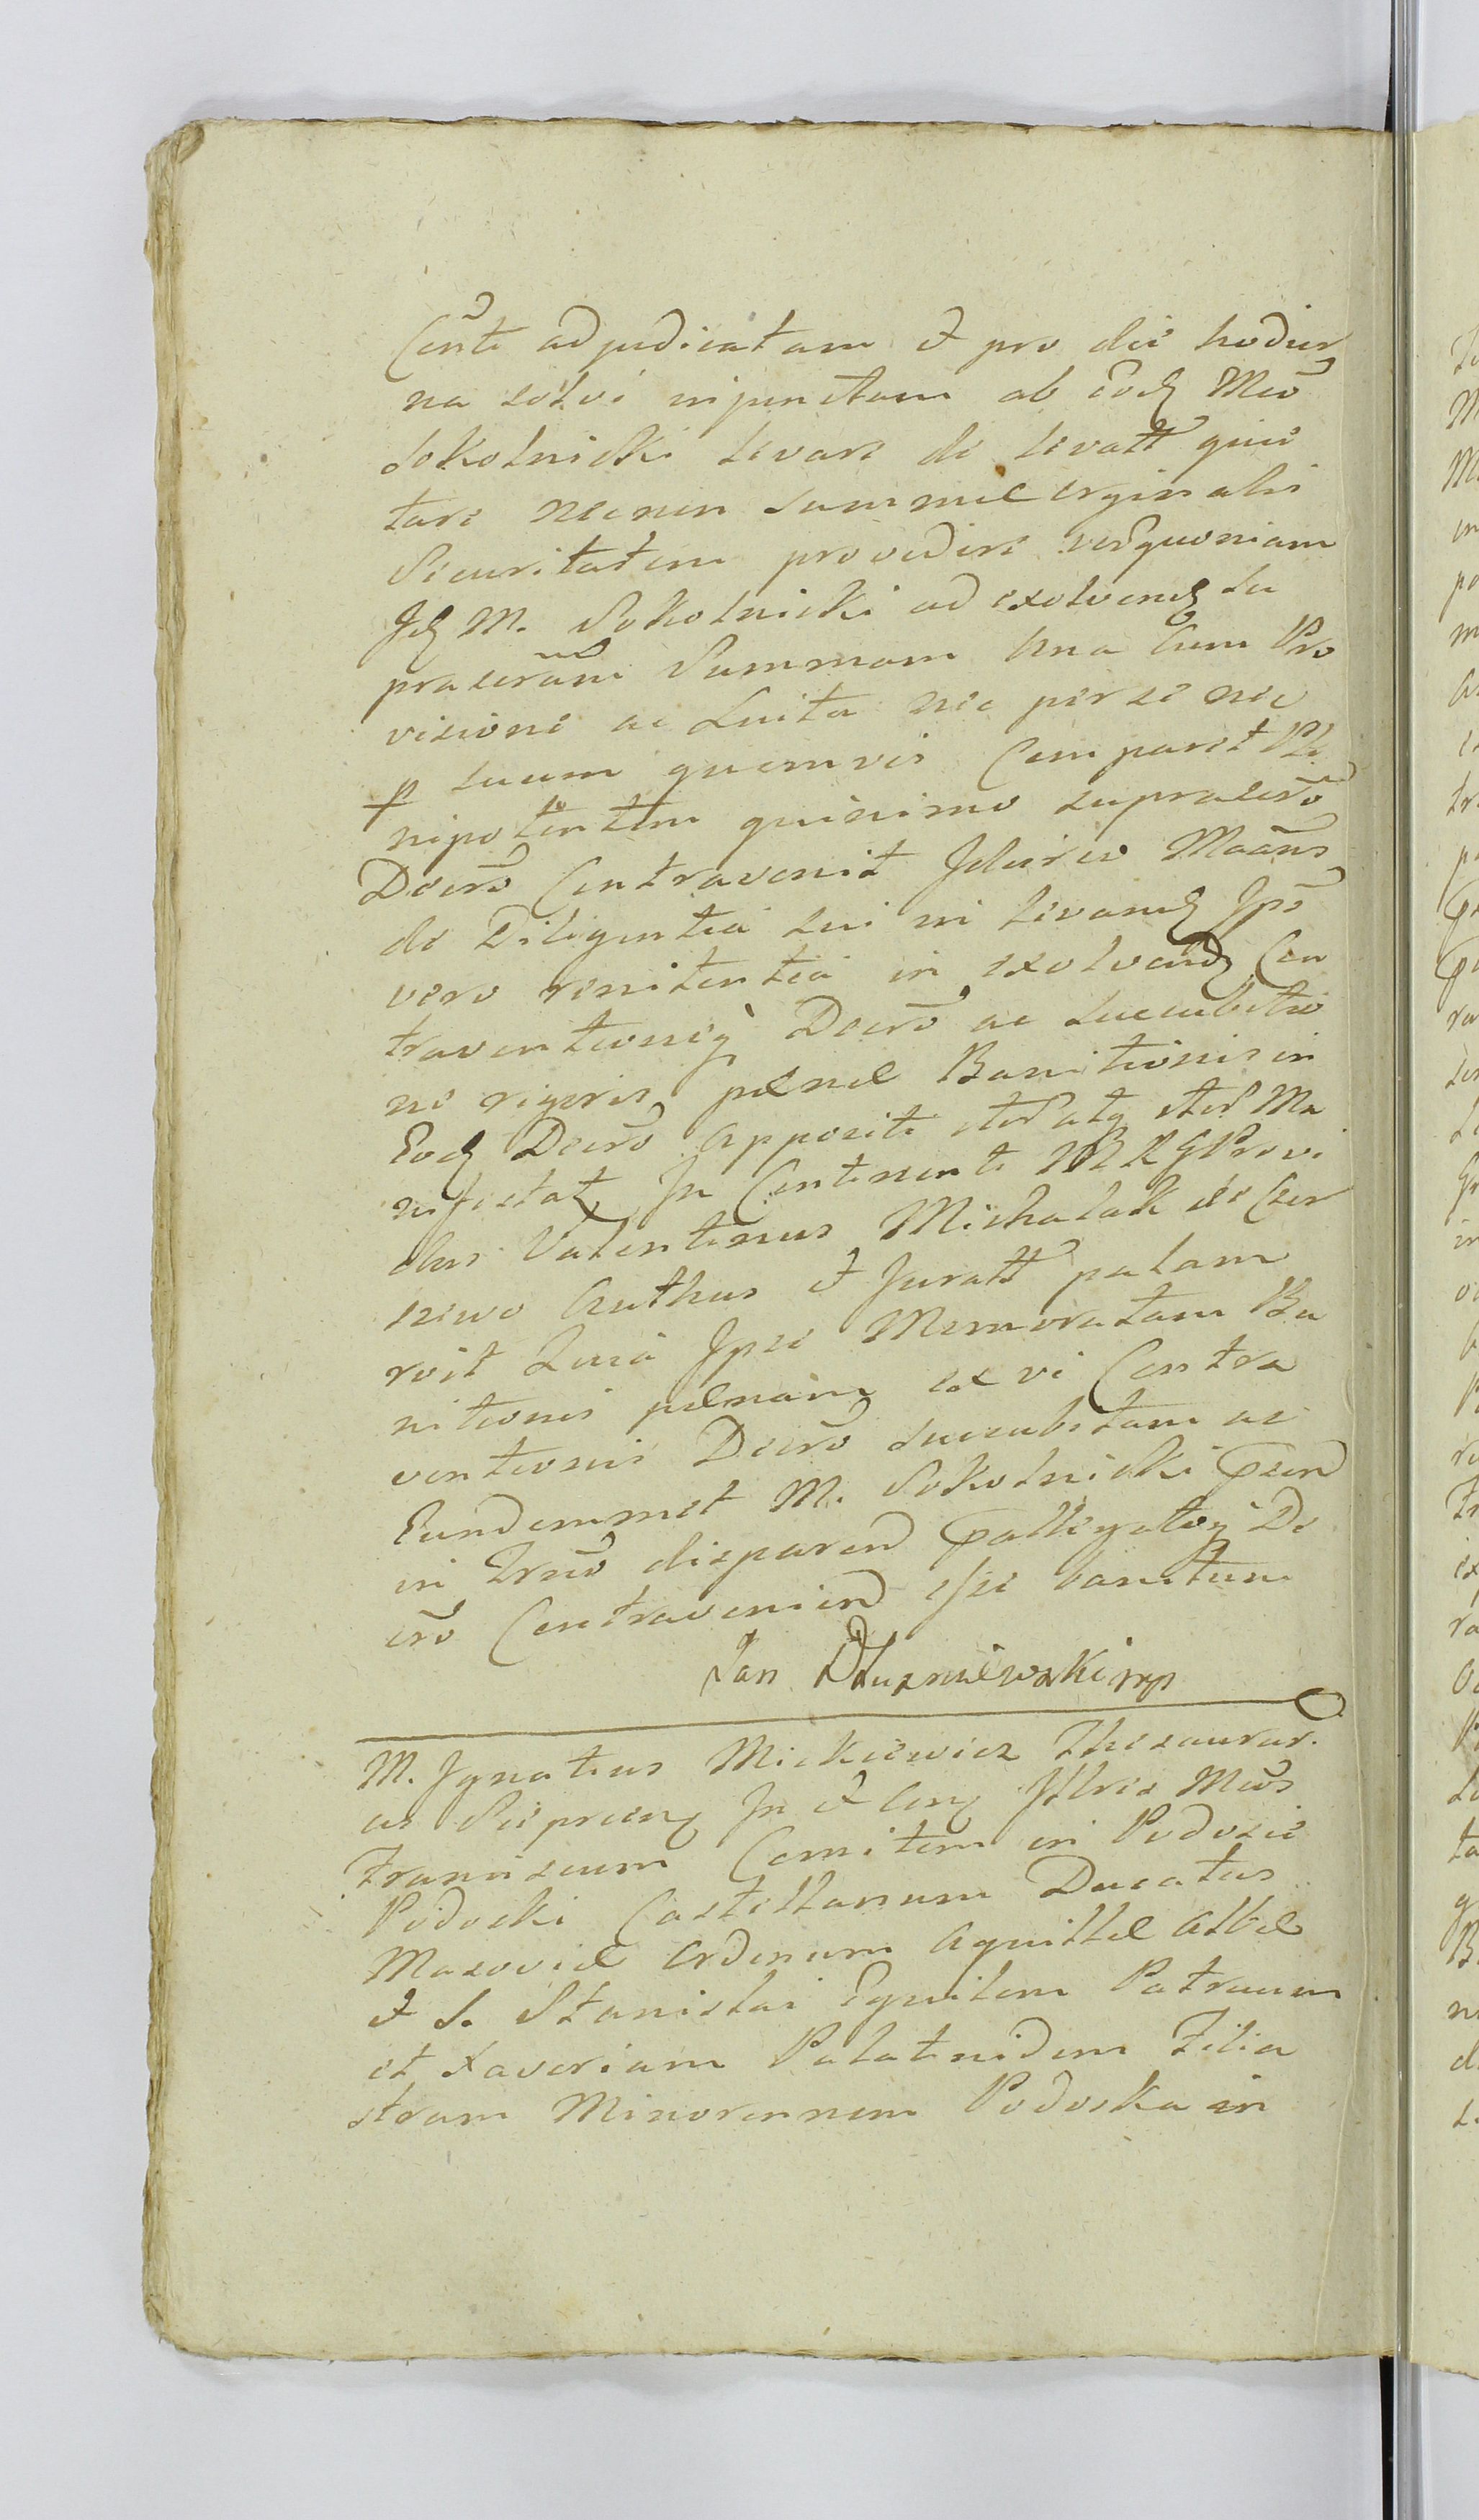 Centi adjudicatam et pro die hodier
na solvi injunctam ab Eod Mco
Sokolnicki levare de levatt quie
tare necnon summae orginalis
Securitatem providere verquoniam
Jd M. Sokolnicki ad exolvend su
prascram Summam Una Cum Pro
visione ac Luita nec per se nec
p suum quemvis Comparet Ple
nipotentem quinimo suprascro
Decro Contravenit Jdeirco Maans
de Diligentia sui in levand Jps
vero renitentia in exolvend Con
traventioneq Decro ac succubitio
ne rigoris paenae Banitionis in
Eod Decro Appositi iter atq iter Ma
nifestat, In Continenti M R G Provi
dus Valentinus Michalak de Czer
niewo Authus et Juratt palam
roit Quia Jpse Memoratam Ba
nitionis paenam ex vi Contra
ventionis Decro succubitam ac
Eundemmet M. Sokolnicki
in Trnô disparend pallegatoq De
crô Contravenien esse banitum
Jan Dłuzniewski mp
M. Jgnatius Mickiewicz Thesaurar.
as Sieprcen In et Cong Jllres Mcos
Franciscum Comitem in Podosie
Podoski Castellanum Ducatus
Mazoviae Ordinum Aquillae Albae
et S. Stanislai Equitem Patruum
et Xaveriam Palatinidem Filia
stram Minorennem Podoska in